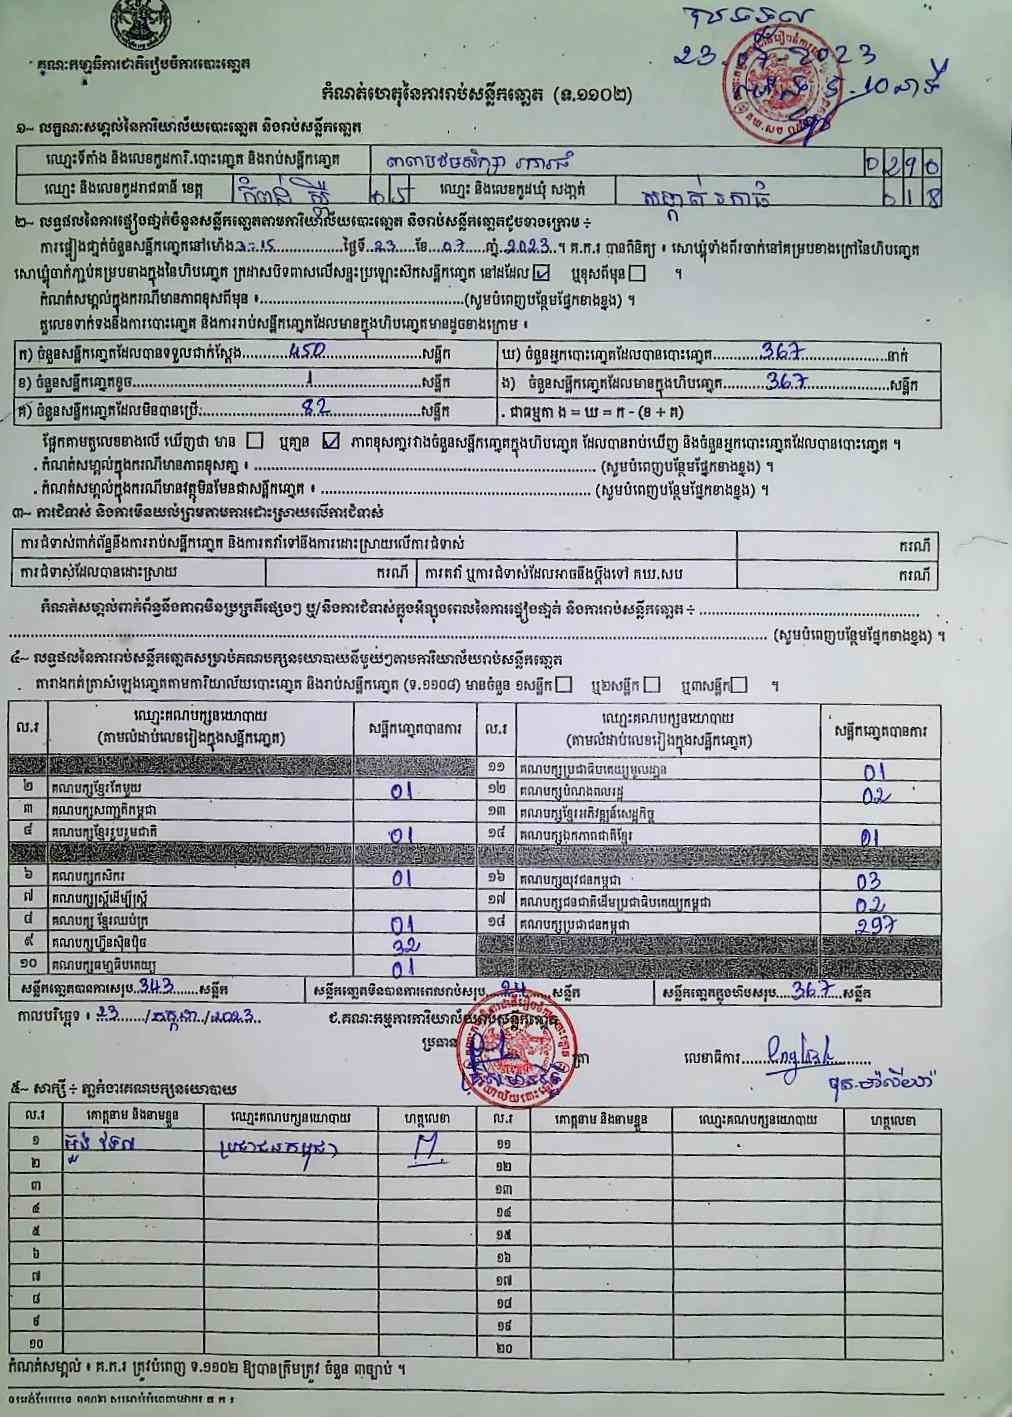 ទទួល
23 07 2023
ម៉ោង 5.10 នាទី
គណៈកម្មាធិការជាតិរៀបចំការបោះឆ្នោត
កំណត់ហេតុនៃការរាប់សន្លឹកឆ្នោត (ទ.១១០២)
១~ លក្ខណៈសម្គាល់នៃការិយាល័យបោះឆ្នោត និងរាប់សន្លឹកឆ្នោត
ឈ្មោះទីតាំង និងលេខកូដការិ.បោះឆ្នោត និងរាប់សន្លឹកឆ្នោត 0290
ឈ្មោះ និងលេខកូដរាជធានី ខេត្ត កំពង់ស្ពឺ 05 ឈ្មោះ និងលេខកូដឃុំ សង្កាត់ សង្កាត់ រកាធំ 018
២~ លទ្ធផលនៃការផ្ទៀងផ្ទាត់ចំនួនសន្លឹកឆ្នោតតាមការិយាល័យបោះឆ្នោត និងរាប់សន្លឹកឆ្នោតដូចខាងក្រោម ÷
ការផ្ទៀងផ្ទាត់ចំនួនសន្លឹកឆ្នោតនៅម៉ោង 3:15 ថ្ងៃទី 23 ខែ 07 ឆ្នាំ 2023 ។ គ.ក.រ បានពិនិត្យ ៖ សោឃ្លុំទាំងពីរចាក់នៅគម្របខាងក្រៅនៃហិបឆ្នោត
សោឃ្លុំចាក់ភ្ជាប់គម្របខាងក្នុងនៃហិបឆ្នោត ក្រដាសបិទពាសលើសន្ទះប្រឡោះស៊កសន្លឹកឆ្នោត នៅដដែល ☑ ឬខុសពីមុន ☐ ។
កំណត់សម្គាល់ក្នុងករណីមានភាពខុសពីមុន ៖ (សូមបំពេញបន្ថែមផ្នែកខាងខ្នង) ។
តួលេខទាក់ទងនឹងការបោះឆ្នោត និងការរាប់សន្លឹកឆ្នោតដែលមានក្នុងហិបឆ្នោតមានដូចខាងក្រោម ៖
ក) ចំនួនសន្លឹកឆ្នោតដែលបានទទួលជាក់ស្តែង 450 សន្លឹក ឃ) ចំនួនអ្នកបោះឆ្នោតដែលបានបោះឆ្នោត 367 នាក់
ខ) ចំនួនសន្លឹកឆ្នោតខូច 1 សន្លឹក ង) ចំនួនសន្លឹកឆ្នោតដែលមានក្នុងហិបឆ្នោត 367 សន្លឹក
គ) ចំនួនសន្លឹកឆ្នោតដែលមិនបានប្រើ 82 សន្លឹក . ជាធម្មតា ង = ឃ = ក - (ខ + គ)
ផ្អែកតាមតួលេខខាងលើ ឃើញថា មាន ☐ ឬគ្មាន ☑ ភាពខុសគ្នារវាងចំនួនសន្លឹកឆ្នោតក្នុងហិបឆ្នោត ដែលបានរាប់ឃើញ និងចំនួនអ្នកបោះឆ្នោតដែលបានបោះឆ្នោត ។
. កំណត់សម្គាល់ក្នុងករណីមានភាពខុសគ្នា ៖ (សូមបំពេញបន្ថែមផ្នែកខាងខ្នង) ។
. កំណត់សម្គាល់ក្នុងករណីមានវត្ថុមិនមែនជាសន្លឹកឆ្នោត ៖ (សូមបំពេញបន្ថែមផ្នែកខាងខ្នង) ។
៣~ ការជំទាស់ និងការមិនយល់ព្រមតាមការដោះស្រាយលើការជំទាស់
ការជំទាស់ពាក់ព័ន្ធនឹងការរាប់សន្លឹកឆ្នោត និងការតវ៉ាទៅនឹងការដោះស្រាយលើការជំទាស់ ករណី
ការជំទាស់ដែលបានដោះស្រាយ ករណី ការតវ៉ា ឬការជំទាស់ដែលអាចនឹងប្តឹងទៅ គឃ.សប ករណី
កំណត់សម្គាល់ពាក់ព័ន្ធនឹងភាពមិនប្រក្រតីផ្សេងៗ ឬ/និងការជំទាស់ក្នុងអំឡុងពេលនៃការផ្ទៀងផ្ទាត់ និងការរាប់សន្លឹកឆ្នោត ÷
(សូមបំពេញបន្ថែមផ្នែកខាងខ្នង) ។
៤~ លទ្ធផលនៃការរាប់សន្លឹកឆ្នោតសម្រាប់គណបក្សនយោបាយនីមួយៗតាមការិយាល័យរាប់សន្លឹកឆ្នោត
តារាងកត់ត្រាសំឡេងឆ្នោតតាមការិយាល័យបោះឆ្នោត និងរាប់សន្លឹកឆ្នោត (ទ.១១០៨) មានចំនួន ១សន្លឹក ☐ ឬ២សន្លឹក ☐ ឬ៣សន្លឹក ☐ ។
ល.រ ឈ្មោះគណបក្សនយោបាយ (តាមលំដាប់លេខរៀងក្នុងសន្លឹកឆ្នោត) សន្លឹកឆ្នោតបានការ ល.រ ឈ្មោះគណបក្សនយោបាយ (តាមលំដាប់លេខរៀងក្នុងសន្លឹកឆ្នោត) សន្លឹកឆ្នោតបានការ
១១ គណបក្សប្រជាធិបតេយ្យមូលដ្ឋាន 01
២ គណបក្សខ្មែរតែមួយ 01 ១២ គណបក្សបំណងពលរដ្ឋ 02
៣ គណបក្សសញ្ជាតិកម្ពុជា ១៣ គណបក្សខ្មែរអភិវឌ្ឍន៍សេដ្ឋកិច្ច
៤ គណបក្សខ្មែររួបរួមជាតិ 01 ១៤ គណបក្សឯកភាពជាតិខ្មែរ 01
៦ គណបក្សកសិករ 01 ១៦ គណបក្សយុវជនកម្ពុជា 03
៧ គណបក្សស្រ្តីដើម្បីស្រ្តី ១៧ គណបក្សជនជាតិដើមប្រជាធិបតេយ្យកម្ពុជា 02
៨ គណបក្ស ខ្មែរឈប់ក្រ 01 ១៨ គណបក្សប្រជាជនកម្ពុជា 297
៩ គណបក្សហ្វ៊ុនស៊ិនប៉ិច 32
១០ គណបក្សធម្មាធិបតេយ្យ 01
សន្លឹកឆ្នោតបានការសរុប 343 សន្លឹក សន្លឹកឆ្នោតមិនបានការពេលរាប់សរុប 24 សន្លឹក សន្លឹកឆ្នោតក្នុងហិបសរុប 367 សន្លឹក
កាលបរិច្ឆេទ ៖ 23 / កក្កដា / 2023 ជ.គណៈកម្មការការិយាល័យរាប់សន្លឹកឆ្នោត
ប្រធាន ត្រា លេខាធិការ
៥~ សាក្សី ÷ ភ្នាក់ងារគណបក្សនយោបាយ
ល.រ គោត្តនាម និងនាមខ្លួន ឈ្មោះគណបក្សនយោបាយ ហត្ថលេខា ល.រ គោត្តនាម និងនាមខ្លួន ឈ្មោះគណបក្សនយោបាយ ហត្ថលេខា
១ ប្រជាជនកម្ពុជា ១១
២ ១២
៣ ១៣
៤ ១៤
៥ ១៥
៦ ១៦
៧ ១៧
៨ ១៨
៩ ១៩
១០ ២០
កំណត់សម្គាល់ ៖ គ.ក.រ ត្រូវបំពេញ ទ.១១០២ ឱ្យបានត្រឹមត្រូវ ចំនួន ៣ច្បាប់ ។